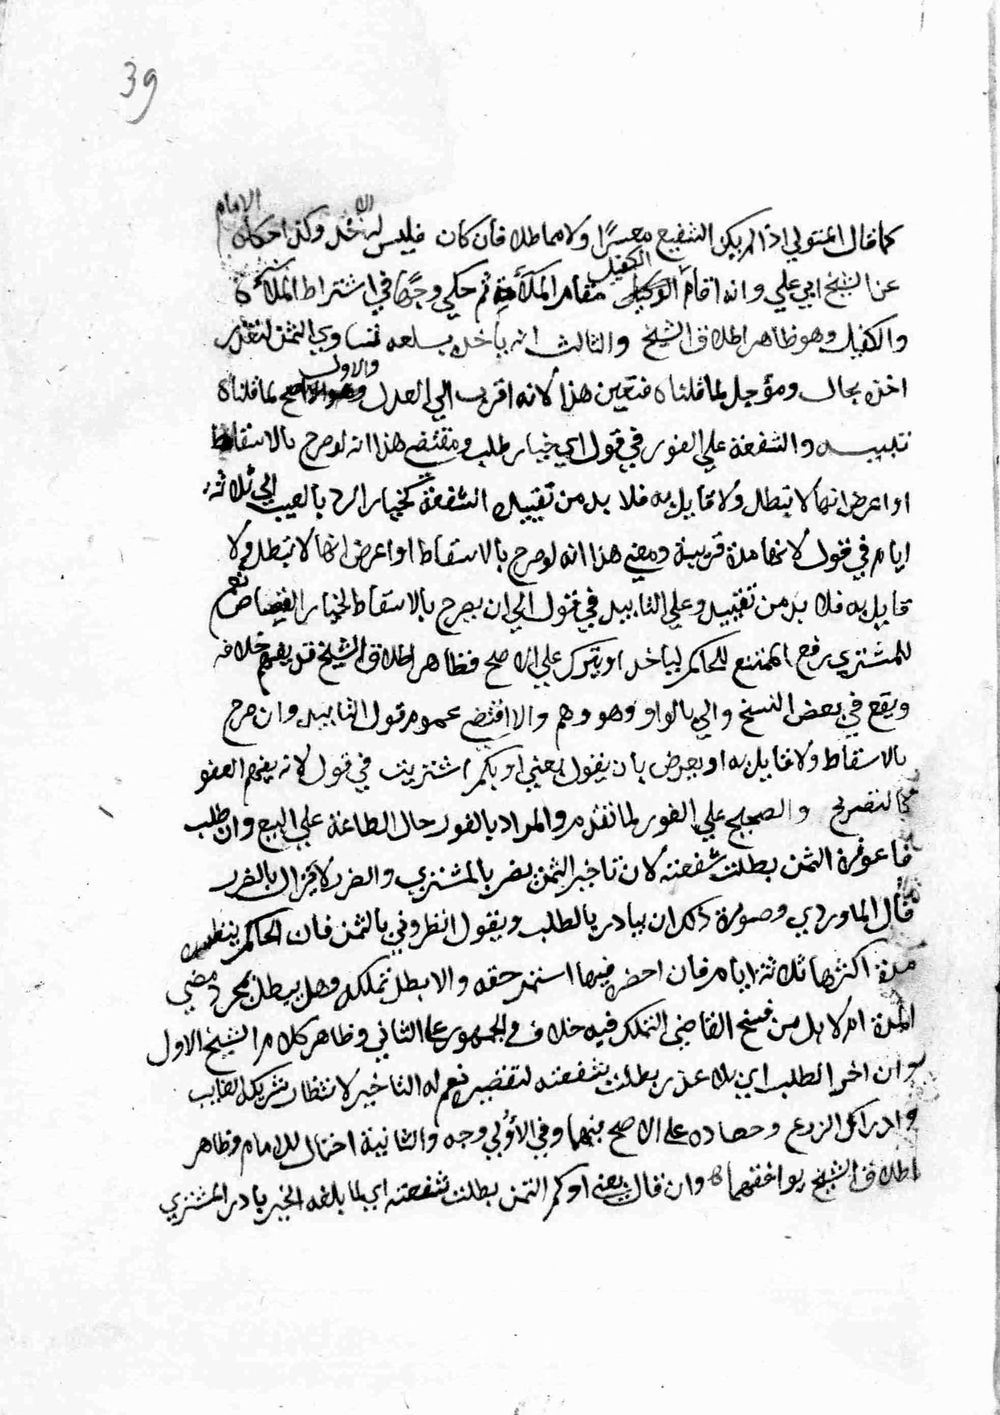 39
كما قال المتولي اذا لم يكن الشفيع معسرا ولا مماطلا فأن كان فليس له الاخذ وكذا حكاه الامام
عن الشيخ ابي علي وانه اقام الكفيل مقام الملأة ثم حكي وجها في اشتراط الملأة
والكفيل وهو ظاهر اطلاق الشيخ والثالث انه ياخذه بسلعه تساوي الثمن لتعذر
اخذه بحال ومؤجل لما قلناه فتعين هذا لانه اقرب الي العدل والاول اصح لما قلناه
تنبيه والشفعة علي الفور في قول اي خيار طلب ومقتضي هذا انه لو صرح بالاسقاط
او اعرض انها لا تبطل ولا قايل به فلا بد من تقييد الشفعة كخيار الرد بالعيب الي ثلاثة
ايام في قول لانها مدة قريبة ومعني هذا انه لو صرح بالاسقاط او اعرض انها لا تبطل ولا
قايل به فلا بد من تقييد وعلي التابيد في قول الي ان يصرح بالاسقاط كخيار القصاص نعم
للمشتري رفع الممتنع للحاكم لياخذ او يترك علي الاصح فظاهر اطلاق الشيخ قد يفهم خلافه
ويقع في بعض النسخ والي بالواو وهو وهم والا اقتضي عموم قول التابيد وان صرح
بالاسقاط ولا قايل به او يعرض بان يقول بعني او بكم اشتريت في قول لانه يفهم العفو
كالتصريح والصحيح علي الفور لما تقدم والمراد بالفور حال الطاعة علي البيع وان طلب
فاعوزه الثمن بطلت شفعته لان تاخير الثمن يضر بالمشتري والضرر لا يزال بالضرر
قال الماوردي وصورة ذلك ان يبادر بالطلب ويقول انظروني بالثمن فان الحاكم ينظره
مدة اكثرها ثلاثة ايام فان احضر فيها استمر حقه والا بطل تملكه وهل يبطل بمجرد مضي
المدة ام لا بد من فسخ القاضي التملك فيه خلاف والجمهور علي الثاني وظاهر كلام الشيخ الاول
وان اخر الطلب اي بلا عذر بطلت شفعته لتقصيره نعم له التاخير لانتظار شريك الغايب
وادراك الزرع وحصاده علي الاصح فيهما وفي الأولي وجه والثانية احتمال للامام وظاهر
اطلاق الشيخ يوافقهما وان قال بعني او كم الثمن بطلت شفعته اي لما بلغه الخبر بادر المشتري